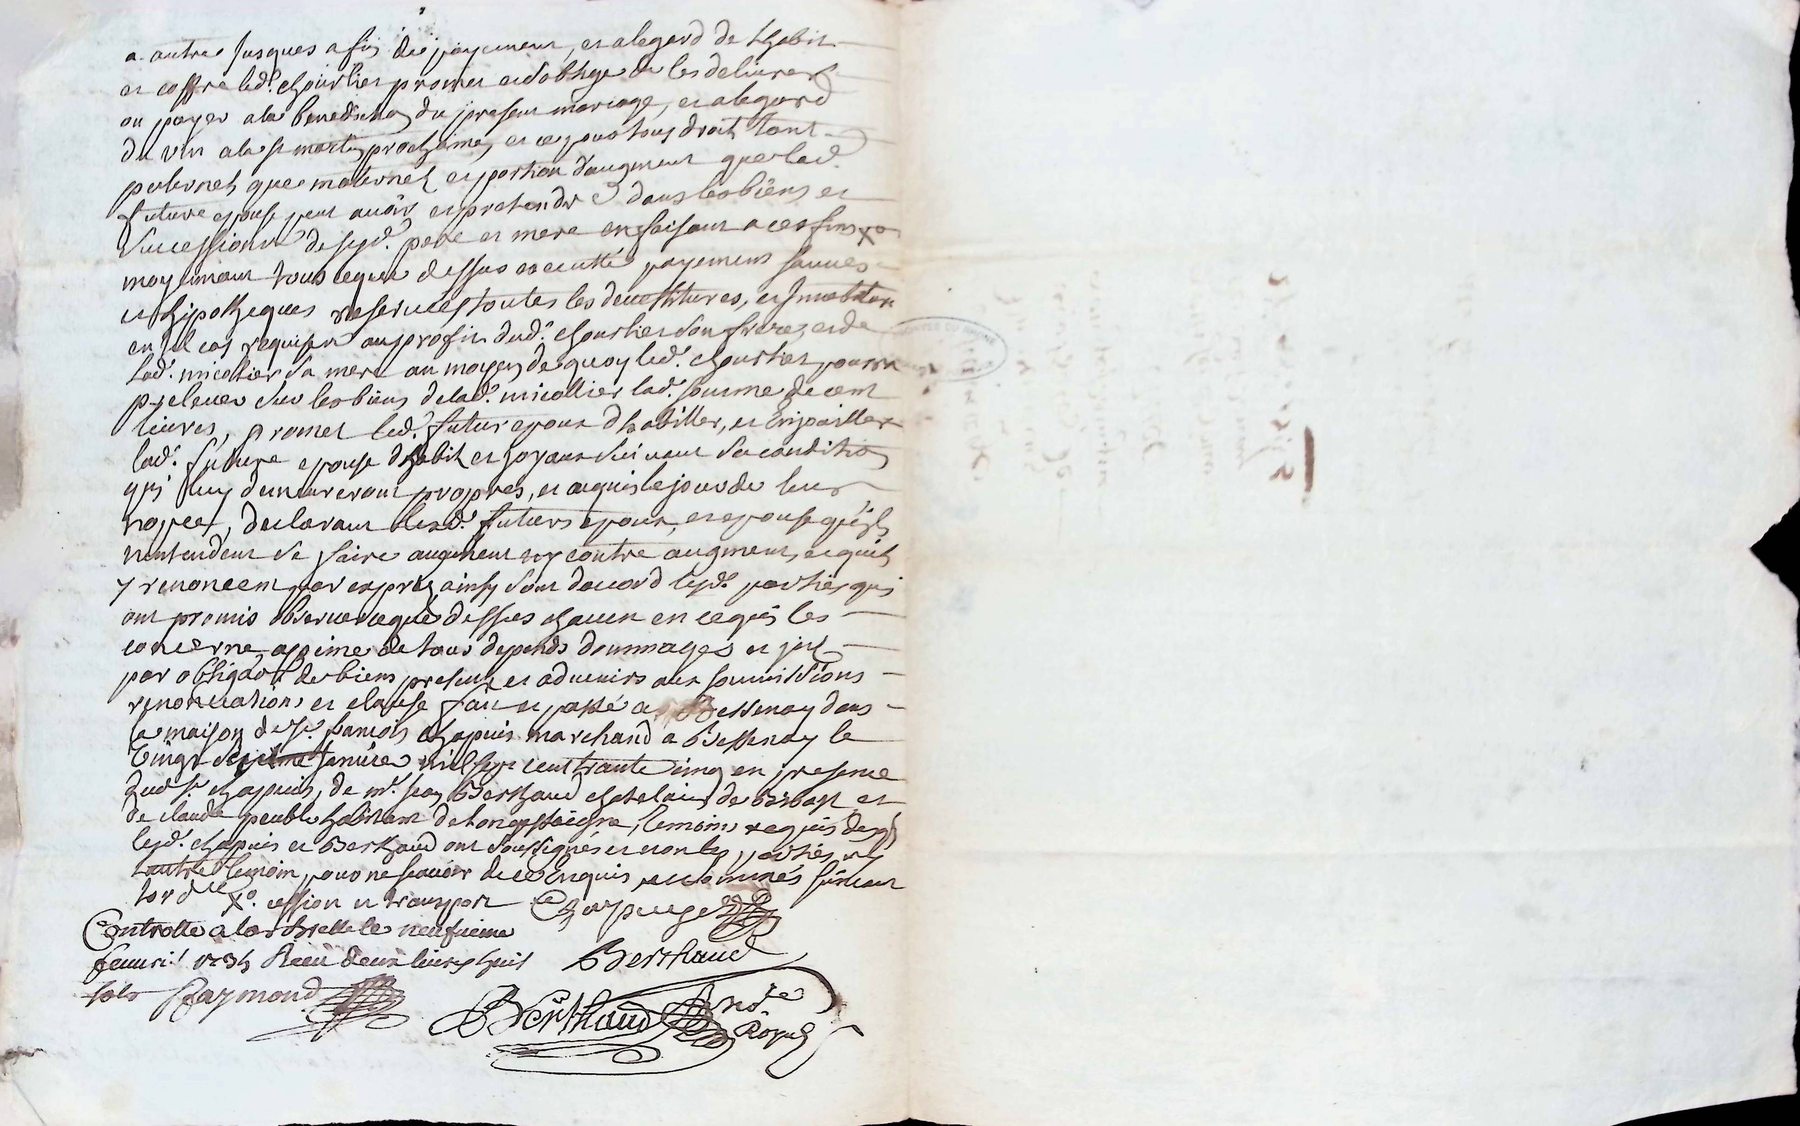 a autre Jusques a fin de payement, et alegard de Lhabit
et coffre led.t chourlier promet et soblige de les delivrer
ou payer a la benediction du present mariage, et alegard
du vin a la st martin prochaine, et ce pour tous droits tant
paternels que maternels et portion daugment que lad.
future epouse peut avoir et pretendre dans les biens et
successions de sesd. pere et mere en faisant a ces fins xo
moyennant tout ce que dessus executté payemens sauves
et hipotheques reservees toutes les devestitures, et Invetitures
en tel cas requises au profit dud. chourlier son frere, et de
lad. micollier sa mere au moyen de quoy led. chourlier pourra
prelever sur les biens de lad. micollier lad. somme de cent
livres, promet led. futur epoux dhabiller, et Enjoailler
lad. future epouse dhabits et joyaux suivant sa condition
qui luy demeureront propres, et acquis le jour de leurs
nopces, declarant lesd. futurs epoux, et epouse quils
nentendent se faire augment ny contre augment, et quils
y renoncent par exprez ainsy sont daccord lesd. parties qui
ont promis observer ce que dessus chacun en ce qui les
concerne, a peine de tous depends dommages et jnt
par obligaon de biens presents et advenirs aux soumissions
renonciations et clause fait et passé a Bessenay dans
la maison de sr. francois chapuis marchand a Bessenay le
vingt janvier mil sept cent trante cinq en presence
dud. sr. chapuis, de mr. jean Berthaud chatelain de bibost et
de claude peuble habitant de Longessaigne, temoins requis desqls
lesd. chapuis et Berthaud ont soussignés et non les parties ny
lautre temoin pour ne scavoir de ce Enquis et sommés suivant
lord.ce xo. cession et transport Chapuis
Controllé a la Bresle le neufieme
fevrier 1735 Receu deux livres huit Berthaud
sols Raymond
Berthaud Nore
Royal